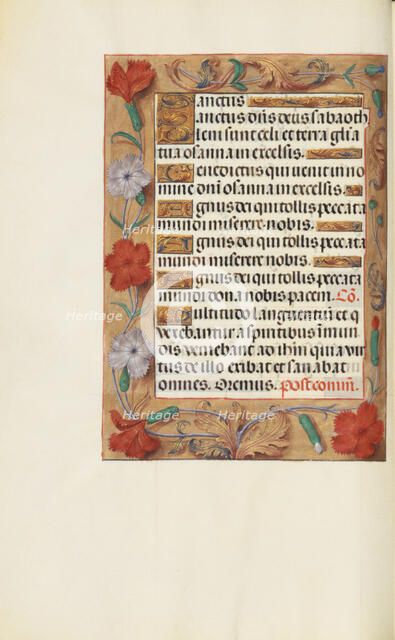 Sanctus
Sanctus dñs deus sabaoth
leni sunt celi et terra gl̃ia
tua osanna in excelsis.
Benedictus qui uenit in no
mine dm̃ osanna in excelsis.
Agnus dei qui tollis peccata
mundi miserere nobis.
Agnus dei qui tollis peccata
mundi miserere nobis.
Agnus dei qui tollis peccata
mundi dona nobis pacem. Cõ.
Multitudo languentiũ et q̃
verebantur a spiritibus ĩmun
dis veniebant ad ihm̃ quia vir
tus de illo exibat et sanabat
omnes. Oremus. Postcom̃.
Heritage
Heritage
Heritage
Heritage
Heritage
Heritage